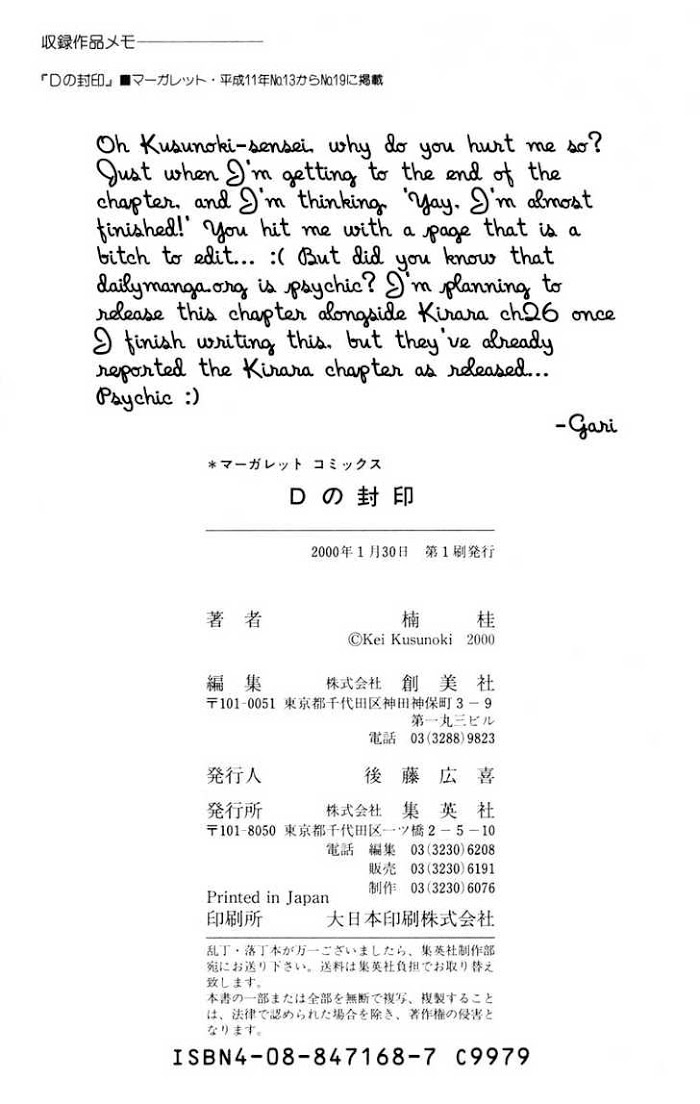 収録作品メモ
「Dの封印」■マーガレット・平成11年№13から№19に掲載
Oh Kusunoki-sensei, why do you hurt me so?
Just when I'm getting to the end of the
chapter, and I'm thinking, 'Yay, I'm almost
finished!' You hit me with a page that is a
bitch to edit... :( But did you know that
dailymanga.org is psychic? I'm planning to
release this chapter alongside Kirara ch26 once
I finish writing this, but they've already
reported the Kirara chapter as released...
Psychic :)
-Gari
＊マーガレット コミックス
Dの封印
2000年1月30日 第1刷発行
著者 楠桂
©Kei Kusunoki 2000
編集 株式会社 創美社
〒101-0051 東京都千代田区神田神保町3－9
第一丸三ビル
電話 03(3288)9823
発行人 後藤広喜
発行所 株式会社 集英社
〒101-8050 東京都千代田区一ツ橋2－5－10
電話 編集 03(3230)6208
販売 03(3230)6191
制作 03(3230)6076
Printed in Japan
印刷所 大日本印刷株式会社
乱丁・落丁本が万一ございましたら、集英社制作部
宛にお送り下さい。送料は集英社負担でお取り替え
致します。
本書の一部または全部を無断で複写、複製すること
は、法律で認められた場合を除き、著作権の侵害と
なります。
ISBN4-08-847168-7 C9979